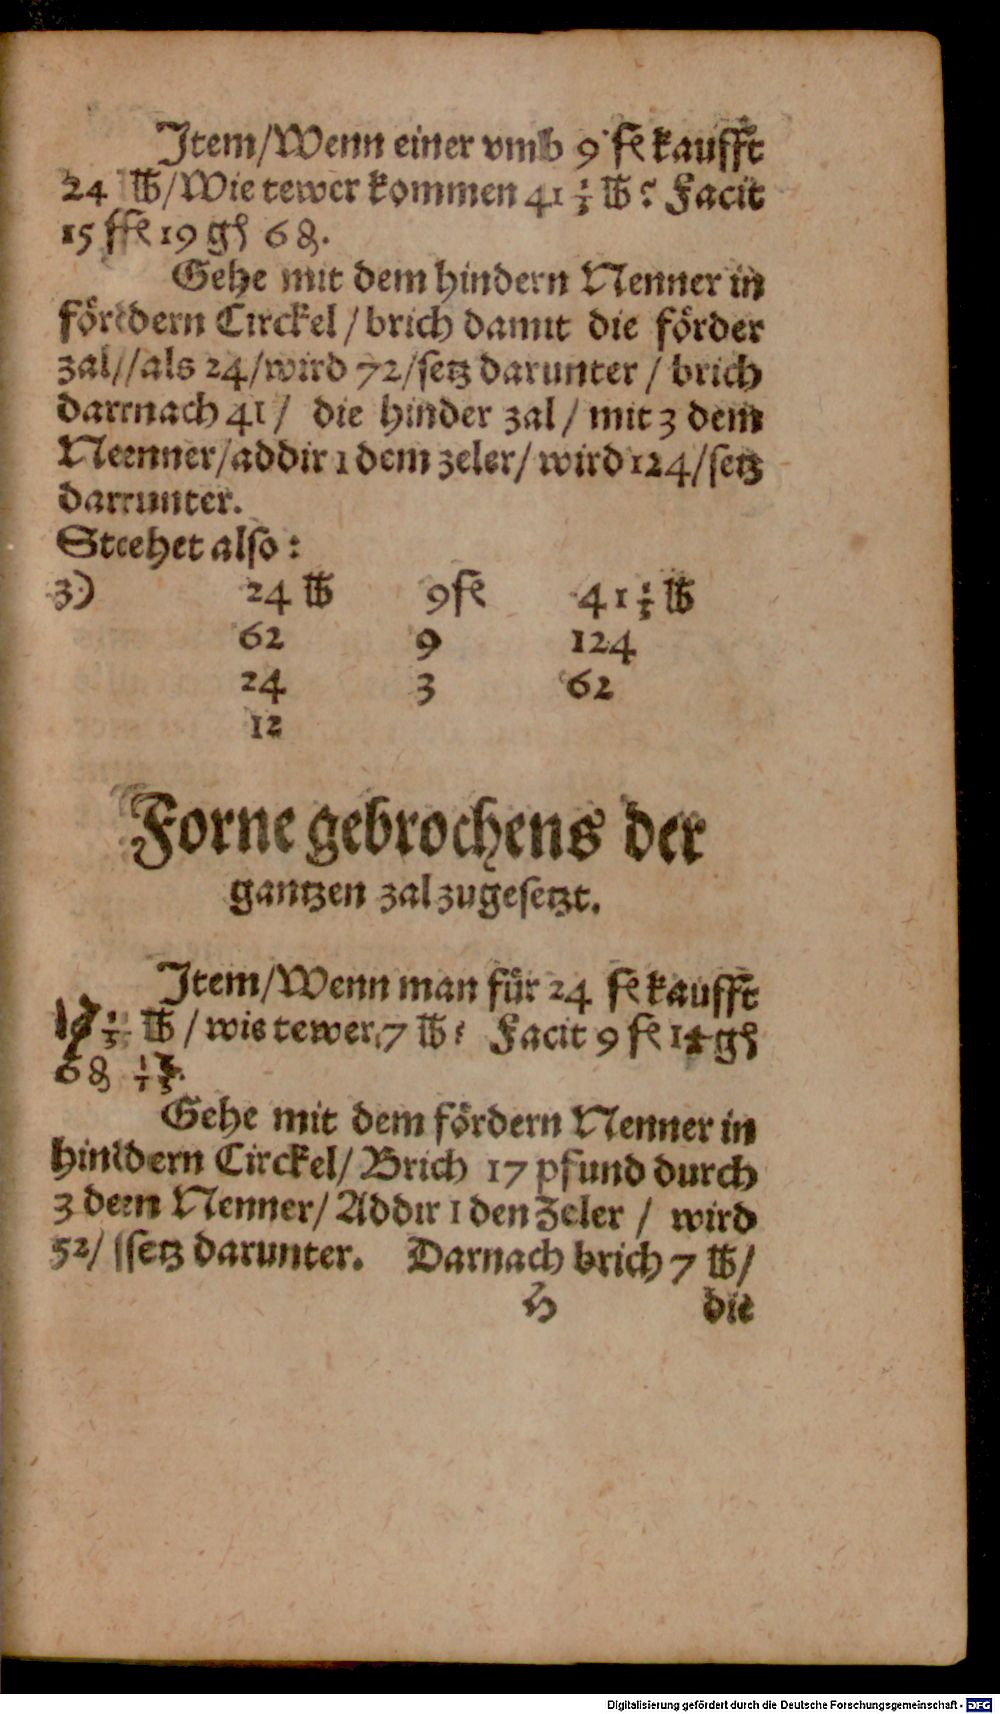 Item/Wenn einer vmb 9 fl kaufft
24 ℔/Wie tewer kommen 41 1/3 ℔? Facit
15 ffl 19 gſ 6 ₰.
Gehe mit dem hindern Nenner in
förddern Circkel/brich damit die förder
zal//als 24/wird 72/setz darunter/brich
darrnach 41/ die hinder zal/mit 3 dem
Neenner/addir 1 dem zeler/wird 124/setz
darrunter.
Steehet also:
3) 24 ℔ 9 fl 41 1/3 ℔
62 9 124
24 3 62
12
Forne gebrochens der
gantzen zal zugesetzt.
Item/Wenn man für 24 fl kaufft
17 1/3 ℔/wie tewer 7 ℔? Facit 9 fl gſ
6 ₰
Gehe mit dem fördern Nenner in
hinddern Circkel/Brich 17 pfund durch
3 dem Nenner/Addir 1 den Zeler/ wird
52/ ſsetz darunter. Darnach brich 7 ℔/
H die
Digitalisierung gefördert durch die Deutsche Forschungsgemeinschaft - DFG